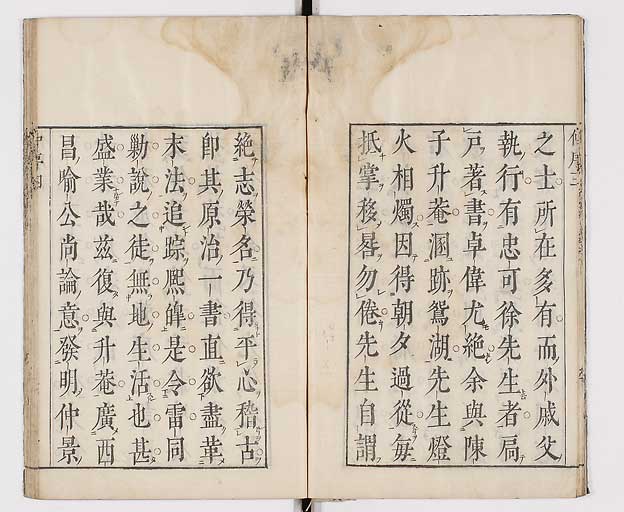 之士所在多有而外戚父
執行有忠可徐先生者扃
戸著書卓偉尤絶余與陳
子升菴溷跡鴛湖先生燈
火相燭因得朝夕過從毎
抵掌移晷勿倦先生自謂
絶志榮名乃得平心稽古
即其原治一書直欲盡革
末法追踪熈皥是令雷同
勦說之徒無地生活也甚
盛業哉茲復與升菴廣西
昌喻公尚論意發明仲景